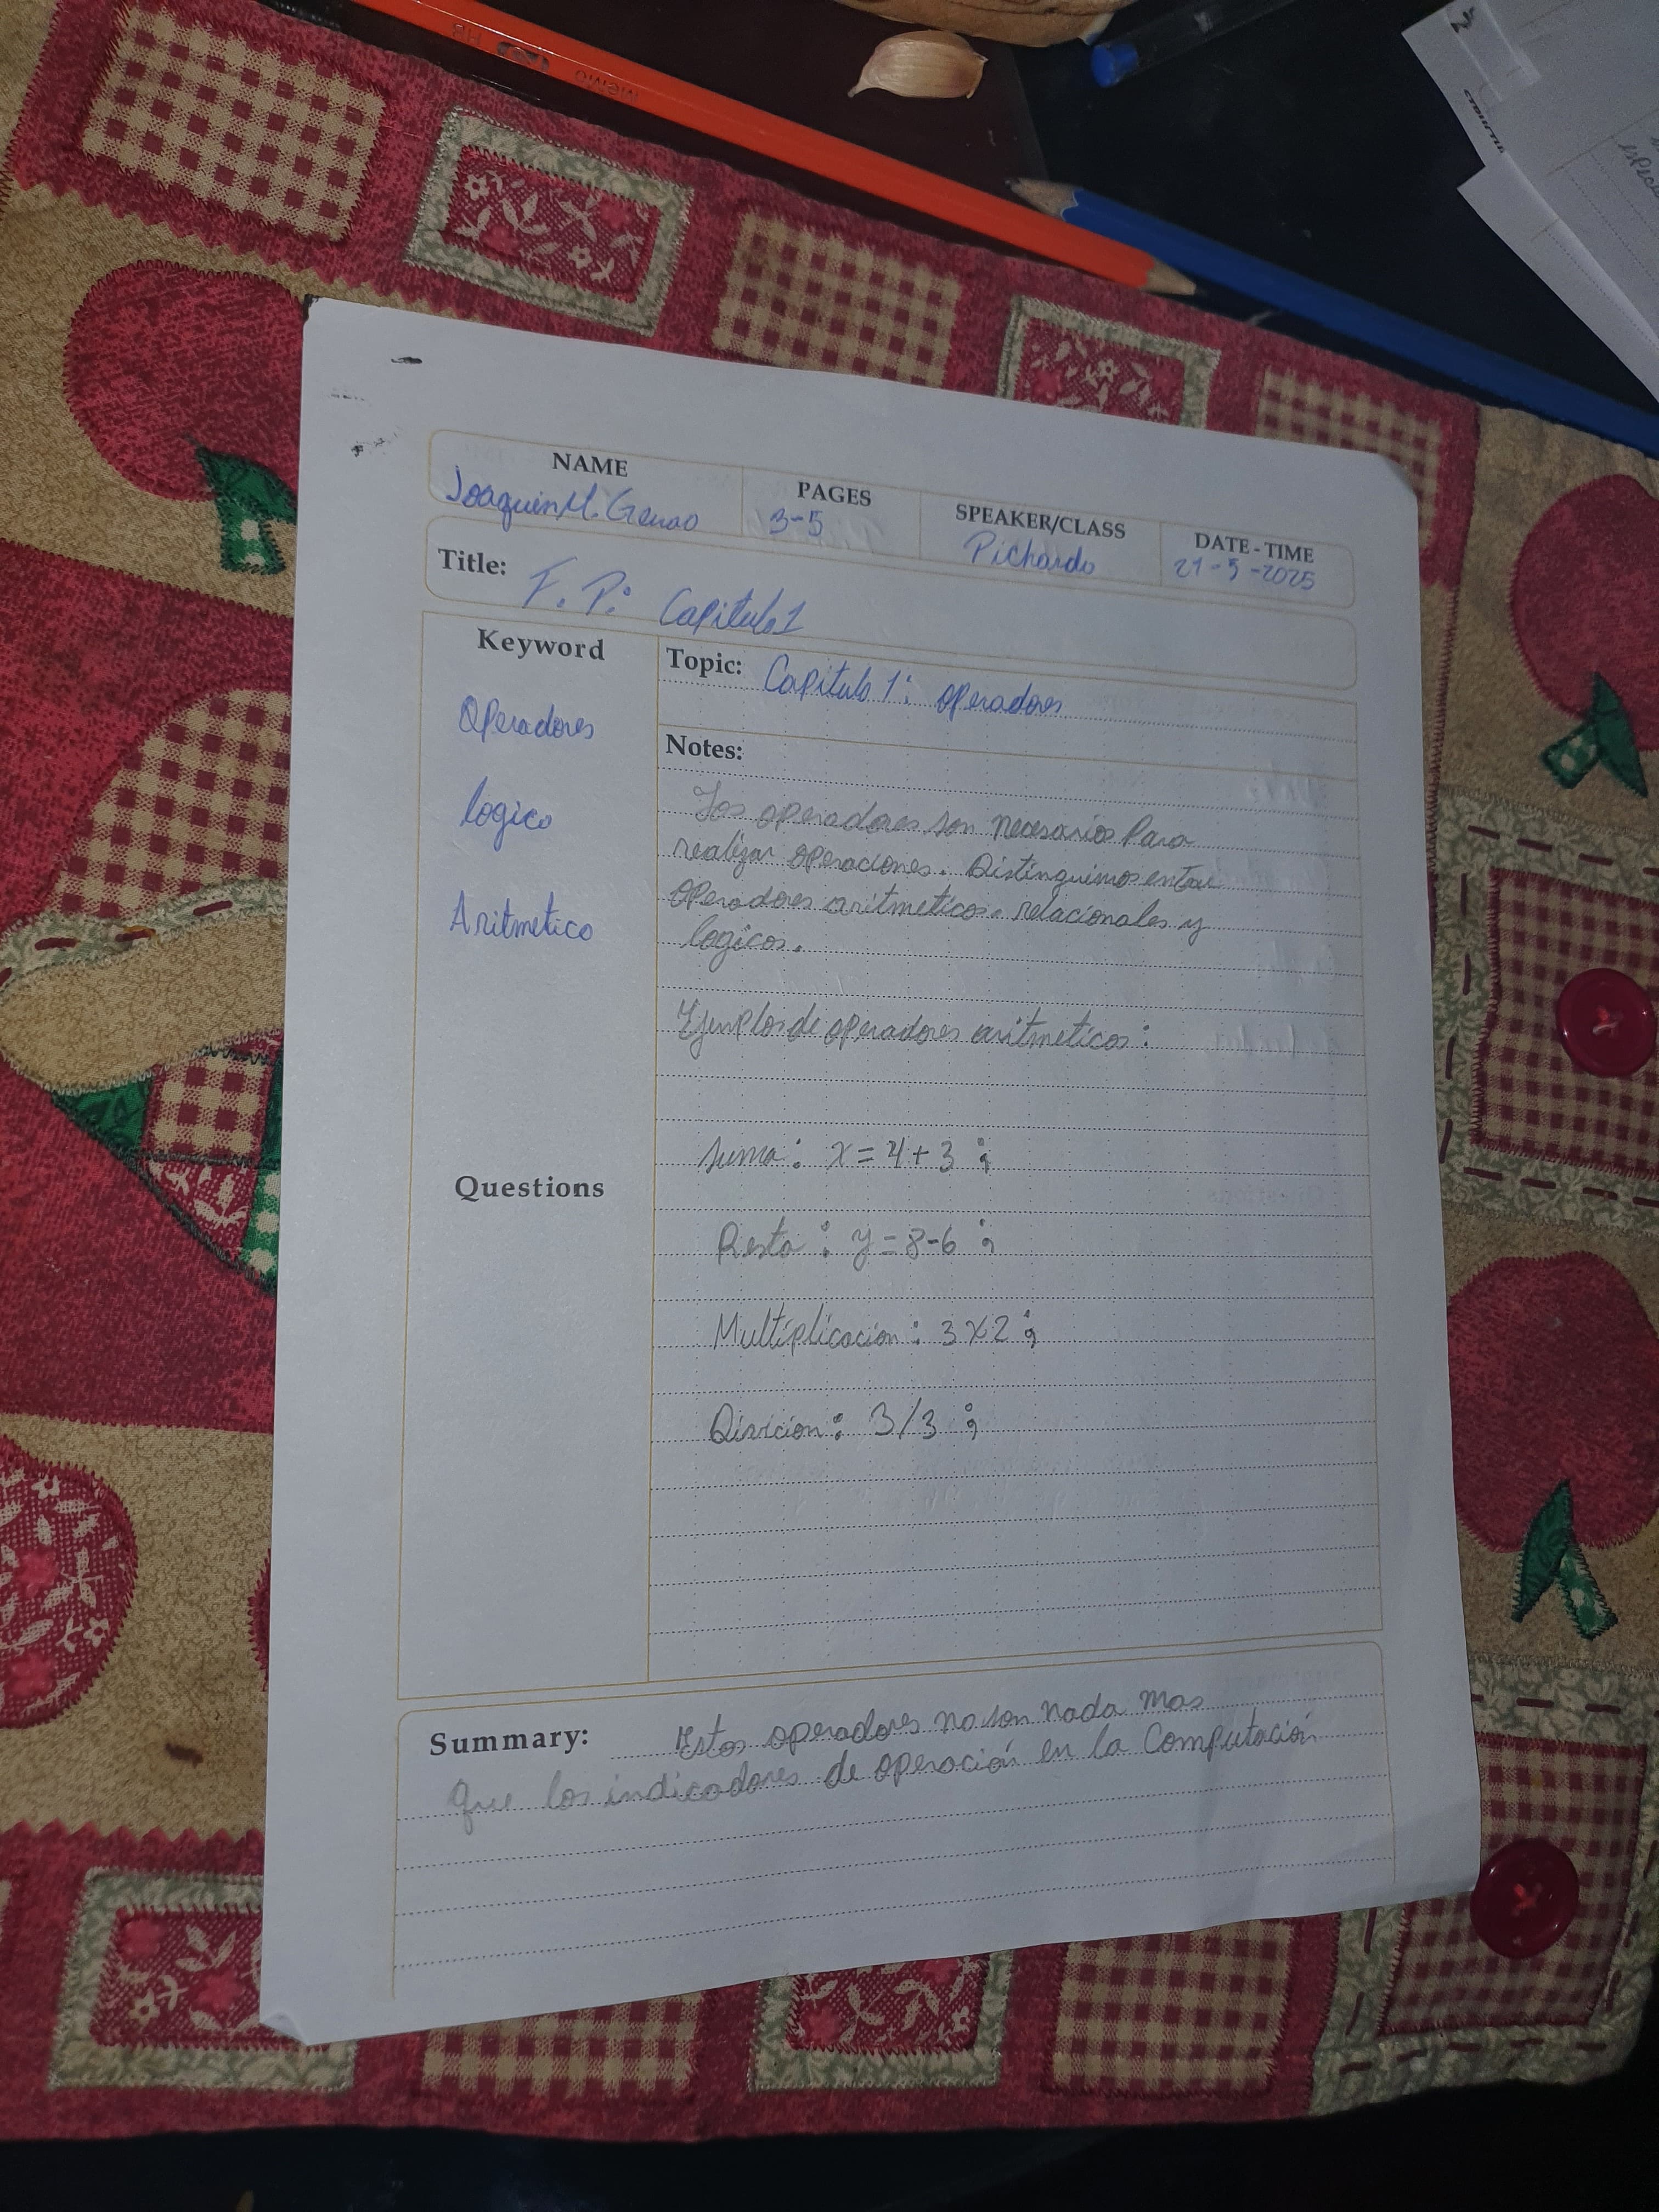 HB
NAME
Joaquin M. Genao
PAGES
3-5
SPEAKER/CLASS
Pichardo
DATE - TIME
21-5-2025
Title: F. P.: Capitulo 1
Keyword
Operadores
logico
Aritmetico
Questions
Topic: Capitulo 1: operadores
Notes:
Los operadores son necesarios Para
realizar operaciones. Distinguimos entre
operadores aritmeticos. relacionales y
logicos.
Ejemplos de operadores aritmeticos:
suma: x = 4 + 3 ;
Resta: y = 8-6 ;
Multiplicacion: 3 x 2 ;
Divicion: 3/3 ;
Summary: Estos operadores no son nada mas
que los indicadores de operación en la Computación